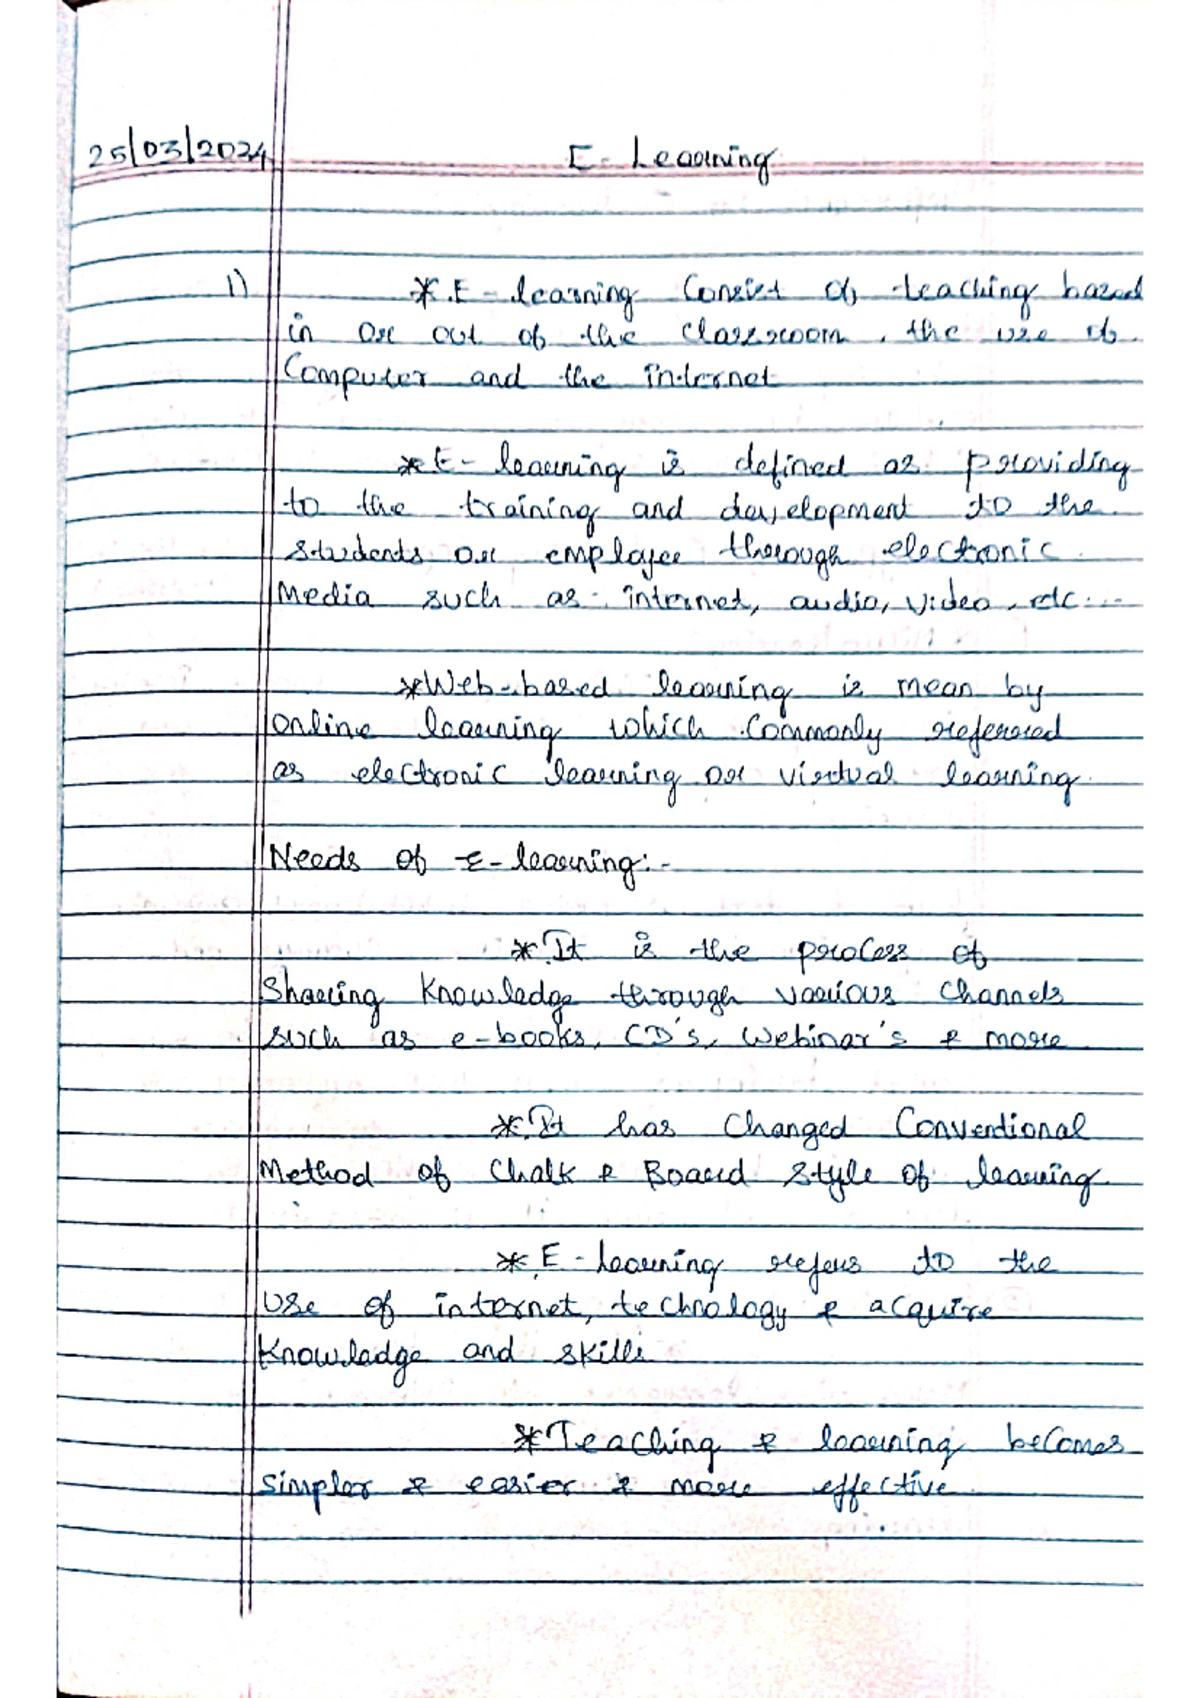 25/03/2024 E-Learning
1) * E-learning Consist of teaching based
in or out of the classroom, the use of
Computer and the internet
* E-learning is defined as providing
to the training and development to the
students or employee through electronic
Media such as internet, audio, video, etc....
* Web-based learning is mean by
online learning which commonly referred
as electronic learning or virtual learning.
Needs of E-learning:-
* It is the process of
Sharing Knowledge through various Channels
such as e-books, CD's, Webinar's & more
* It has Changed Conventional
Method of Chalk & Board style of learning.
* E-learning refers to the
Use of internet, technology & acquire
Knowledge and skills
* Teaching & learning becomes
Simpler & easier & more effective.